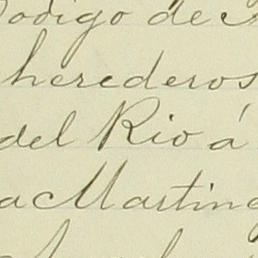 Código de
herederos
del Rio á
a Martin